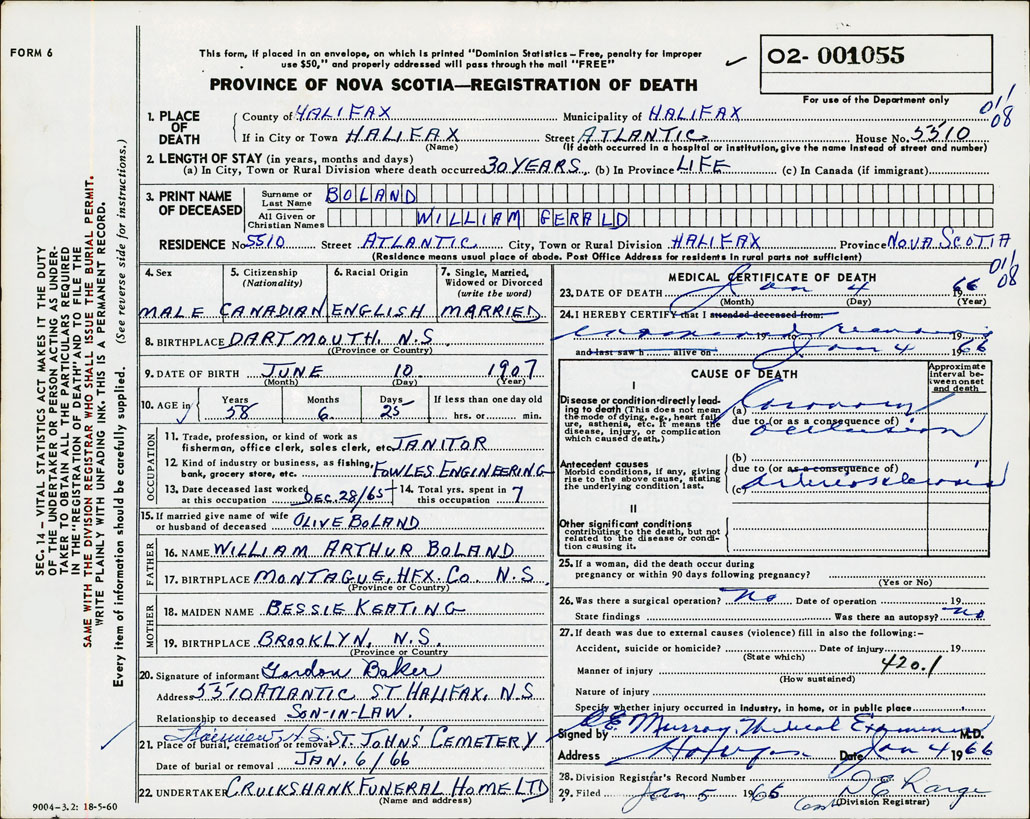 FORM 6
This form, if placed in an envelope, on which is printed "Dominion Statistics – Free, penalty for improper
use $50," and properly addressed will pass through the mail "FREE"
02- 001055
For use of the Department only
PROVINCE OF NOVA SCOTIA—REGISTRATION OF DEATH
011/08
1. PLACE OF DEATH
County of HALIFAX Municipality of HALIFAX
If in City or Town HALIFAX Street ATLANTIC House No. 5510
(Name) (If death occurred in a hospital or institution, give the name instead of street and number)
2. LENGTH OF STAY (in years, months and days)
(a) In City, Town or Rural Division where death occurred 30 YEARS (b) In Province LIFE (c) In Canada (if immigrant)
3. PRINT NAME OF DECEASED
Surname or Last Name BOLAND
All Given or Christian Names WILLIAM GERALD
RESIDENCE No. 5510 Street ATLANTIC City, Town or Rural Division HALIFAX Province NOVA SCOTIA
(Residence means usual place of abode. Post Office Address for residents in rural parts not sufficient)
011/08
4. Sex 5. Citizenship (Nationality) 6. Racial Origin 7. Single, Married, Widowed or Divorced (write the word)
MALE CANADIAN ENGLISH MARRIED
8. BIRTHPLACE DARTMOUTH, N.S.
(Province or Country)
9. DATE OF BIRTH JUNE 10 1907
(Month) (Day) (Year)
10. AGE in Years 58 Months 6 Days 25 If less than one day old hrs. or min.
OCCUPATION
11. Trade, profession, or kind of work as
fisherman, office clerk, sales clerk, etc. JANITOR
12. Kind of industry or business, as fishing,
bank, grocery store, etc. FOWLES ENGINEERING
13. Date deceased last worked at this occupation DEC. 28/65 14. Total yrs. spent in this occupation 7
15. If married give name of wife
or husband of deceased OLIVE BOLAND
FATHER
16. NAME WILLIAM ARTHUR BOLAND
17. BIRTHPLACE MONTAGUE, HFX. CO. N.S.
(Province or Country)
MOTHER
18. MAIDEN NAME BESSIE KEATING
19. BIRTHPLACE BROOKLYN, N.S.
(Province or Country)
20. Signature of informant Gordon Baker
Address 5510 ATLANTIC ST HALIFAX, N.S
Relationship to deceased SON-IN-LAW.
21. Place of burial, cremation or removal ST. JOHN'S CEMETERY
Date of burial or removal JAN. 6/66
22. UNDERTAKER CRUIKSHANK FUNERAL HOME LTD
(Name and address)
9004-3.2: 18-5-60
MEDICAL CERTIFICATE OF DEATH
23. DATE OF DEATH Jan 4 1966
(Month) (Day) (Year)
24. I HEREBY CERTIFY that I attended deceased from:
19 to 19
and last saw h alive on Jan 4 1966
CAUSE OF DEATH
Approximate interval between onset and death
I
Disease or condition directly leading to death (This does not mean the mode of dying, e.g., heart failure, asthenia, etc. It means the disease, injury, or complication which caused death.)
(a) Coronary
due to (or as a consequence of)
occlusion
Antecedent causes
Morbid conditions, if any, giving rise to the above cause, stating the underlying condition last.
(b)
due to (or as a consequence of)
(c) arteriosclerosis
II
Other significant conditions
contributing to the death, but not related to the disease or condition causing it.
25. If a woman, did the death occur during
pregnancy or within 90 days following pregnancy?
(Yes or No)
26. Was there a surgical operation? No Date of operation 19
State findings Was there an autopsy? No
27. If death was due to external causes (violence) fill in also the following:–
Accident, suicide or homicide? Date of injury 19
(State which)
Manner of injury 420.1
(How sustained)
Nature of injury
Specify whether injury occurred in industry, in home, or in public place
Signed by Murray Medical Examiner M.D.
Address Halifax Date Jan 4 1966
28. Division Registrar's Record Number
29. Filed Jan 5 1966
(Division Registrar)
SEC. 14 – VITAL STATISTICS ACT MAKES IT THE DUTY
OF THE UNDERTAKER OR PERSON ACTING AS UNDER-
TAKER TO OBTAIN ALL THE PARTICULARS REQUIRED
IN THE "REGISTRATION OF DEATH" AND TO FILE THE
SAME WITH THE DIVISION REGISTRAR WHO SHALL ISSUE THE BURIAL PERMIT.
WRITE PLAINLY WITH UNFADING INK. THIS IS A PERMANENT RECORD.
Every item of information should be carefully supplied. (See reverse side for instructions.)